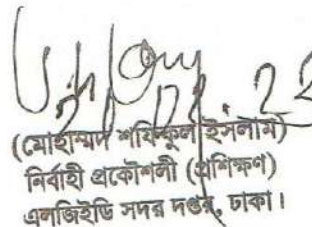 (মোহাম্মদ শফিকুল ইসলাম)
নির্বাহী প্রকৌশলী (প্রশিক্ষণ)
এলজিইডি সদর দপ্তর, ঢাকা।